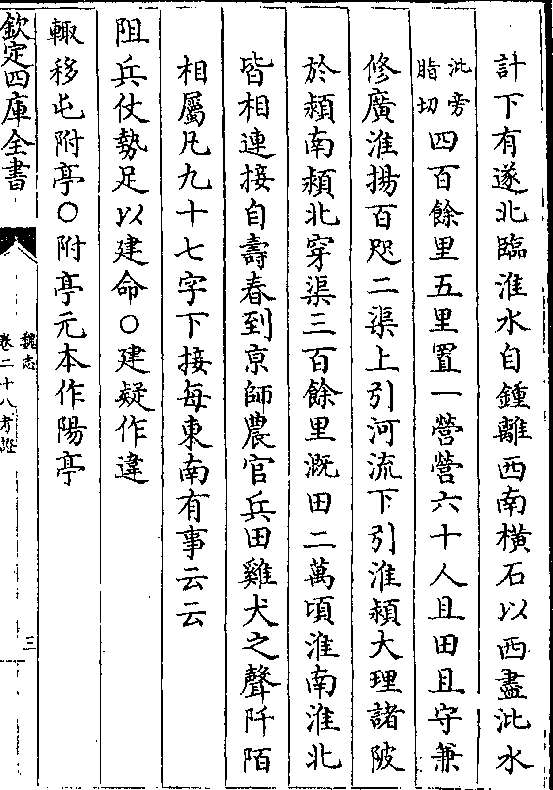 計下有遂北臨淮水自鍾離西南横石以西盡沘水
沘旁脂切四百餘里五里置一營營六十人且田且守兼
修廣淮揚百咫二渠上引河流下引淮潁大理諸陂
於潁南潁北穿渠三百餘里溉田二萬頃淮南淮北
皆相連接自壽春到京師農官兵田雞犬之聲阡陌
相屬凡九十七字下接每東南有事云云
阻兵仗勢足以建命○建疑作違
輙移屯附亭○附亭元本作陽亭
欽定四庫全書
魏志
卷二十八考證
三